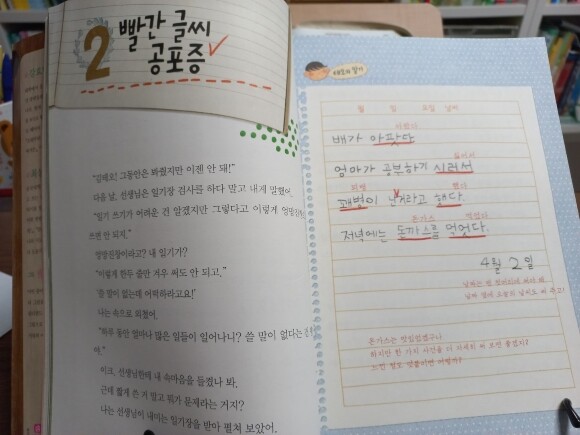 2 빨간 글씨
공포증
"김태호! 그동안은 봐줬지만 이젠 안 돼!"
다음 날, 선생님은 일기장 검사를 하다 말고 내게 말했어.
"일기 쓰기가 어려운 건 알겠지만 그렇다고 이렇게
쓰면 안 되지."
엉망진창이라고? 내 일기가?
"이렇게 한두 줄만 겨우 써도 안 되고."
'쓸 말이 없는데 어떡하라고요!'
나는 속으로 외쳤어.
"하루 동안 얼마나 많은 일들이 일어나니? 쓸 말이 없다는
이크, 선생님한테 내 속마음을 들켰나 봐.
근데 짧게 쓴 거 말고 뭐가 문제라는 거지?
나는 선생님이 내미는 일기장을 받아 펼쳐 보았어.
태호의 일기
월 일 요일 날씨
아팠다
배가 아팟다
싫어서
엄마가 공부하기 시러서
꾀병
했다
꽤별이 난거라고 해다.
돈가스
먹었다
저녁에는 돔까스를 먹었다.
4월 2일
돈가스는 맛있었겠구나
하지만 한 가지 사건을 더 자세히 써 보면 좋겠지?
느낀 점도 덧붙이면 어떨까?